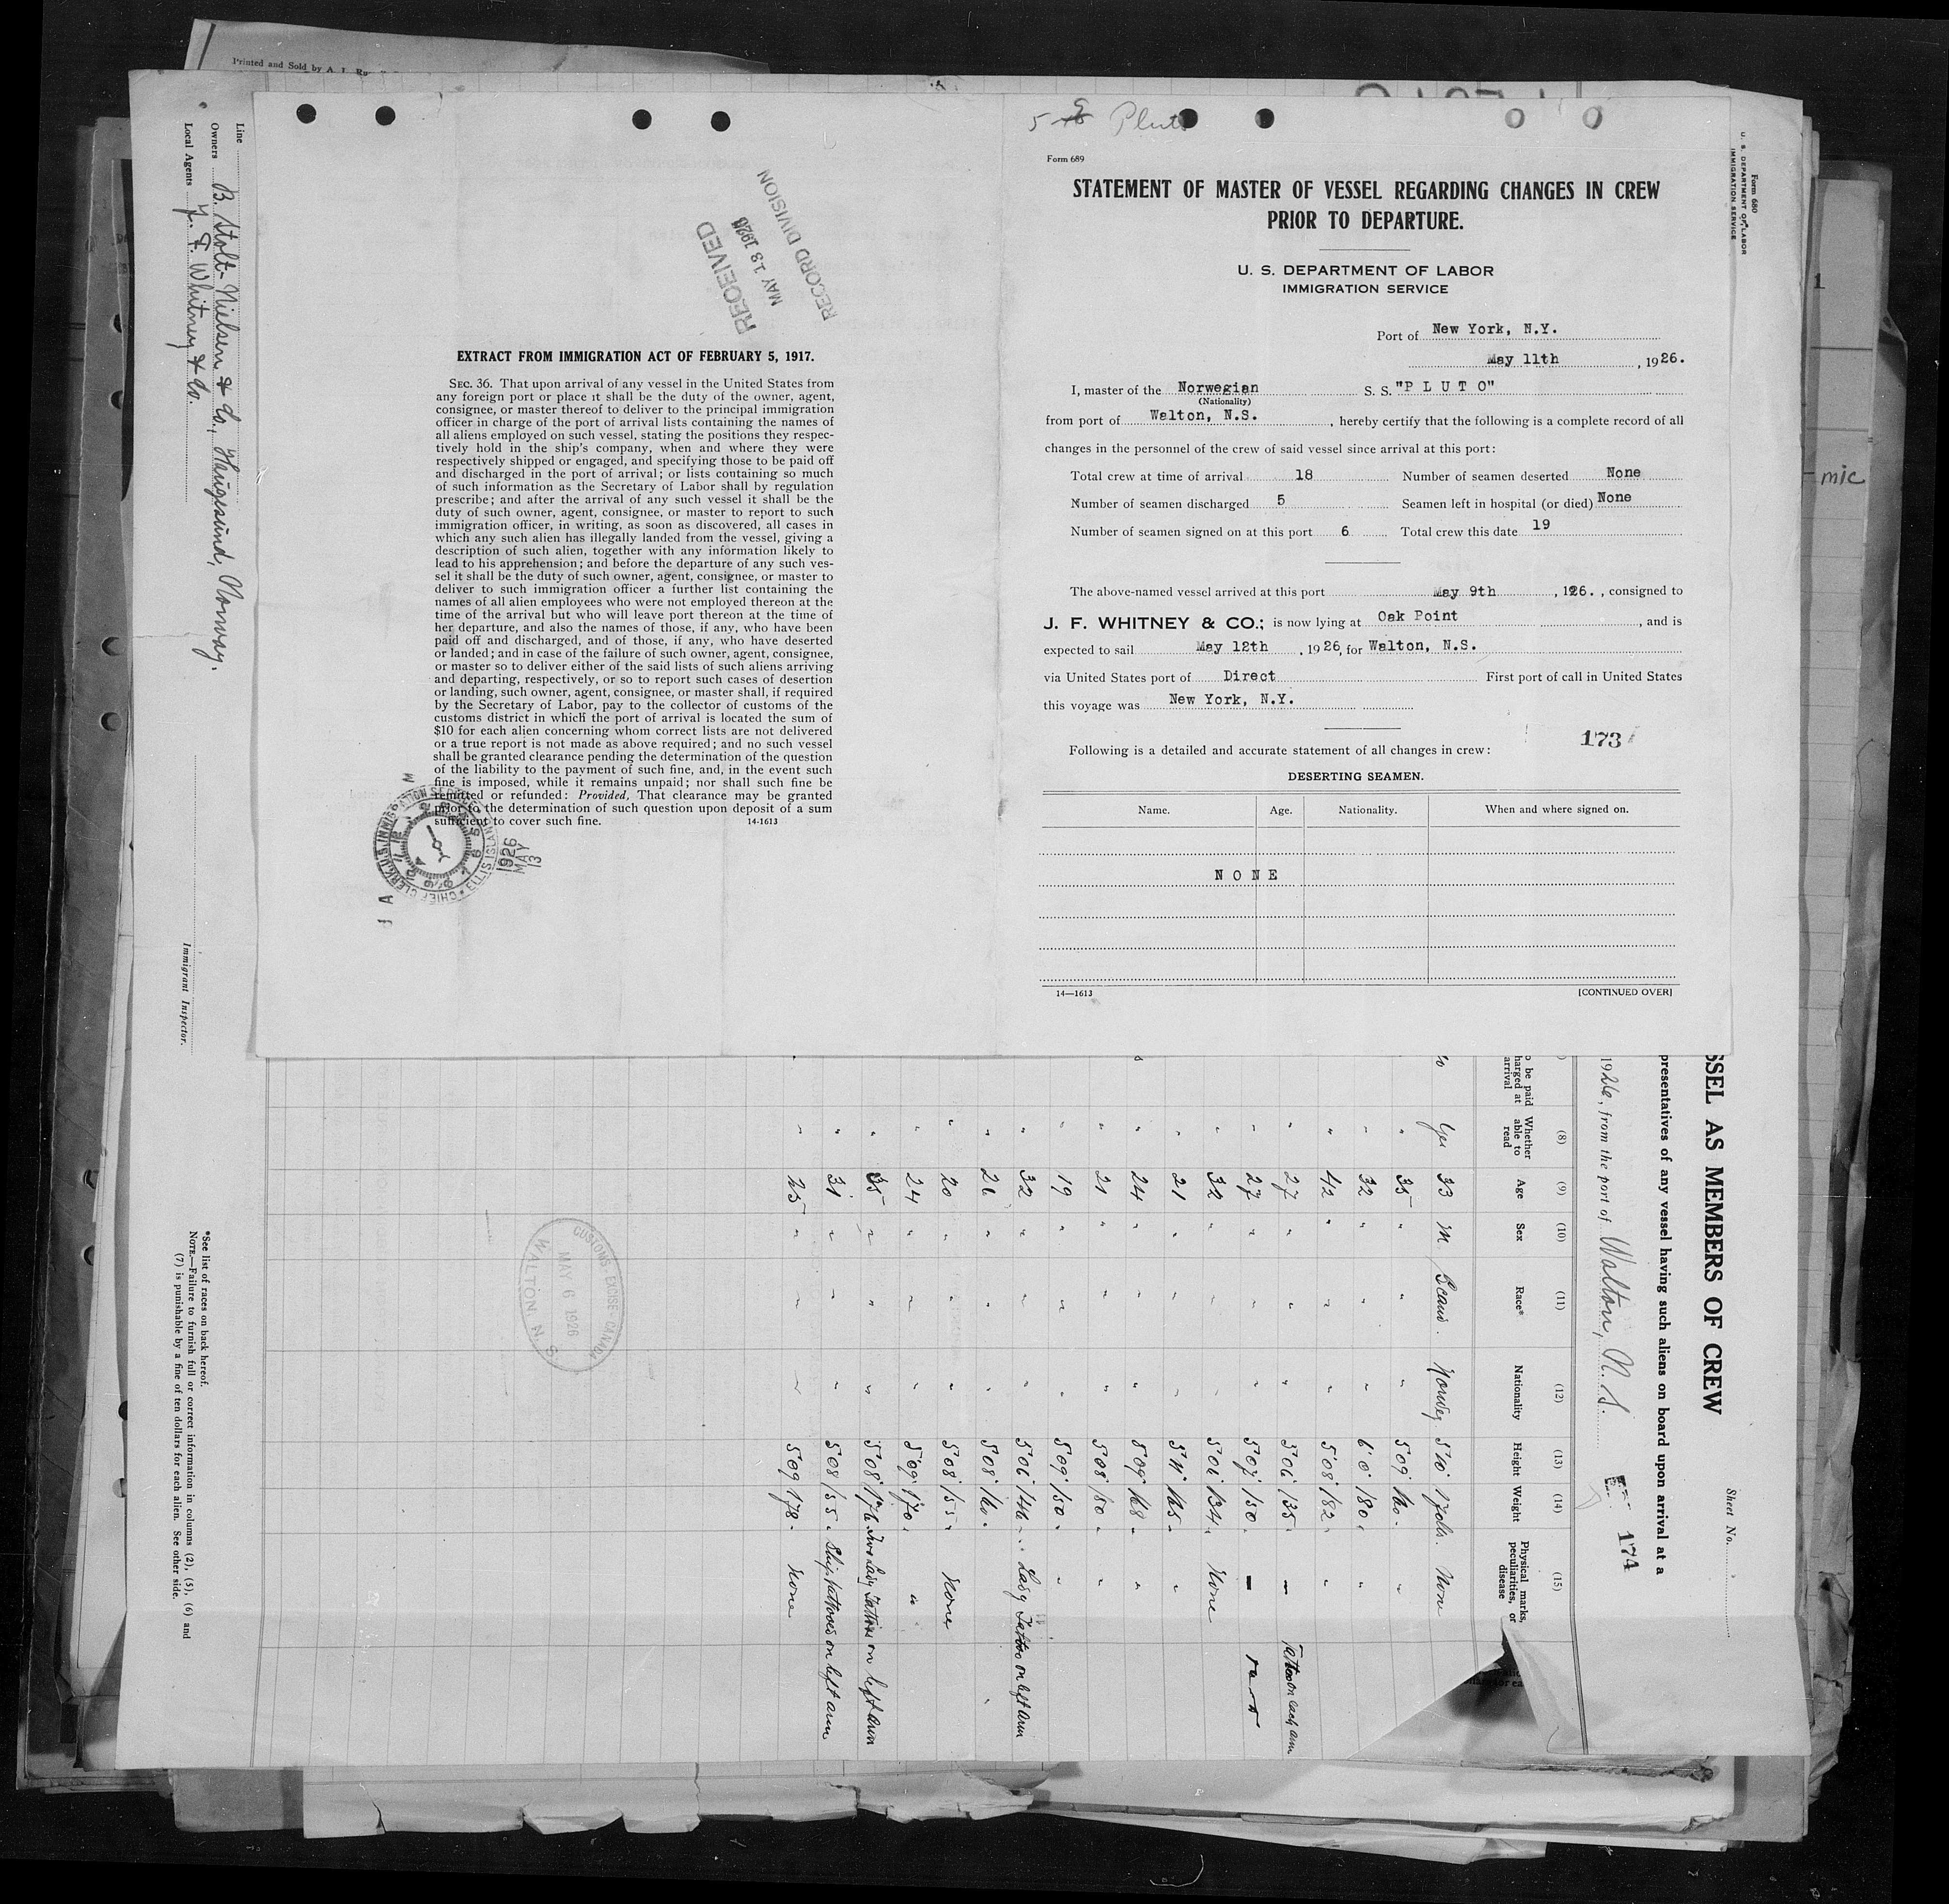 Printed and Sold by A. L.
Line
Owners B. Stolt-Nielsen & Co., Haugesund, Norway.
Local Agents J. F. Whitney & Co.
Immigrant Inspector.
RECEIVED
MAY 13 1926
RECORD DIVISION
EXTRACT FROM IMMIGRATION ACT OF FEBRUARY 5, 1917.
SEC. 36. That upon arrival of any vessel in the United States from
any foreign port or place it shall be the duty of the owner, agent,
consignee, or master thereof to deliver to the principal immigration
officer in charge of the port of arrival lists containing the names of
all aliens employed on such vessel, stating the positions they respec-
tively hold in the ship's company, when and where they were
respectively shipped or engaged, and specifying those to be paid off
and discharged in the port of arrival; or lists containing so much
of such information as the Secretary of Labor shall by regulation
prescribe; and after the arrival of any such vessel it shall be the
duty of such owner, agent, consignee, or master to report to such
immigration officer, in writing, as soon as discovered, all cases in
which any such alien has illegally landed from the vessel, giving a
description of such alien, together with any information likely to
lead to his apprehension; and before the departure of any such ves-
sel it shall be the duty of such owner, agent, consignee, or master to
deliver to such immigration officer a further list containing the
names of all alien employees who were not employed thereon at the
time of the arrival but who will leave port thereon at the time of
her departure, and also the names of those, if any, who have been
paid off and discharged, and of those, if any, who have deserted
or landed; and in case of the failure of such owner, agent, consignee,
or master so to deliver either of the said lists of such aliens arriving
and departing, respectively, or so to report such cases of desertion
or landing, such owner, agent, consignee, or master shall, if required
by the Secretary of Labor, pay to the collector of customs of the
customs district in which the port of arrival is located the sum of
$10 for each alien concerning whom correct lists are not delivered
or a true report is not made as above required; and no such vessel
shall be granted clearance pending the determination of the question
of the liability to the payment of such fine, and, in the event such
fine is imposed, while it remains unpaid; nor shall such fine be
remitted or refunded: Provided, That clearance may be granted
prior to the determination of such question upon deposit of a sum
sufficient to cover such fine.
14-1613
1926
MAY
13
Pluto
Form 689
STATEMENT OF MASTER OF VESSEL REGARDING CHANGES IN CREW
PRIOR TO DEPARTURE.
U. S. DEPARTMENT OF LABOR
IMMIGRATION SERVICE
Port of New York, N.Y.
May 11th, 1926.
I, master of the Norwegian S. S. "P L U T O"
(Nationality)
from port of Walton, N.S., hereby certify that the following is a complete record of all
changes in the personnel of the crew of said vessel since arrival at this port:
Total crew at time of arrival 18 Number of seamen deserted None
Number of seamen discharged 5 Seamen left in hospital (or died) None
Number of seamen signed on at this port 6 Total crew this date 19
The above-named vessel arrived at this port May 9th, 1926., consigned to
J. F. WHITNEY & CO.; is now lying at Oak Point, and is
expected to sail May 12th, 1926, for Walton, N.S.
via United States port of Direct First port of call in United States
this voyage was New York, N.Y.
173
Following is a detailed and accurate statement of all changes in crew:
DESERTING SEAMEN.
Name. Age. Nationality. When and where signed on.
N O N E
14—1613 [CONTINUED OVER]
Form 680
U. S. DEPARTMENT OF LABOR
IMMIGRATION SERVICE
mic
SSEL AS MEMBERS OF CREW
Sheet No.
presentatives of any vessel having such aliens on board upon arrival at a
1926, from the port of Walton, N. S.
174
(8) (9) (10) (11) (12) (13) (14) (15)
o be paid
harged at
arrival
Whether able to read
Age
Sex
Race*
Nationality
Height
Weight
Physical marks, peculiarities, or disease
Yes 33 m Scand. Norweg 5'10 170lbs. None
" 35 " " " 5'09" 160 - "
" 32 " " " 6'0" 180. "
" 42 " " " 5'08" 182. "
" 27 " " " 5'06" 135. — Tattoo on each arm
" 27 " " " 5'07" 150. —
" 32 " " " 5'06" 134. None
" 21 " " " 5'11" 165 - "
" 24 " " " 5'09" 168 - "
" 21 " " " 5'08" 150 - "
" 19 " " " 5'09" 150 - "
" 32 " " " 5'06" 146 - Lady Tattoo on left arm
" 26 " " " 5'08" 160 -
" 20 " " " 5'08" 155 - None
" 24 " " " 5'09" 170. "
" 35 " " " 5'08" 176. Two Lady Tattoos on left arm
" 31 " " " 5'08" 155 - Ship tattooed on left arm
" 25 " " " 5'09" 178 - None
CUSTOMS EXCISE-CANADA
MAY 6 1926
WALTON, N. S.
*See list of races on back hereof.
NOTE.—Failure to furnish full or correct information in columns (2), (5), (6) and
(7) is punishable by a fine of ten dollars for each alien. See other side.